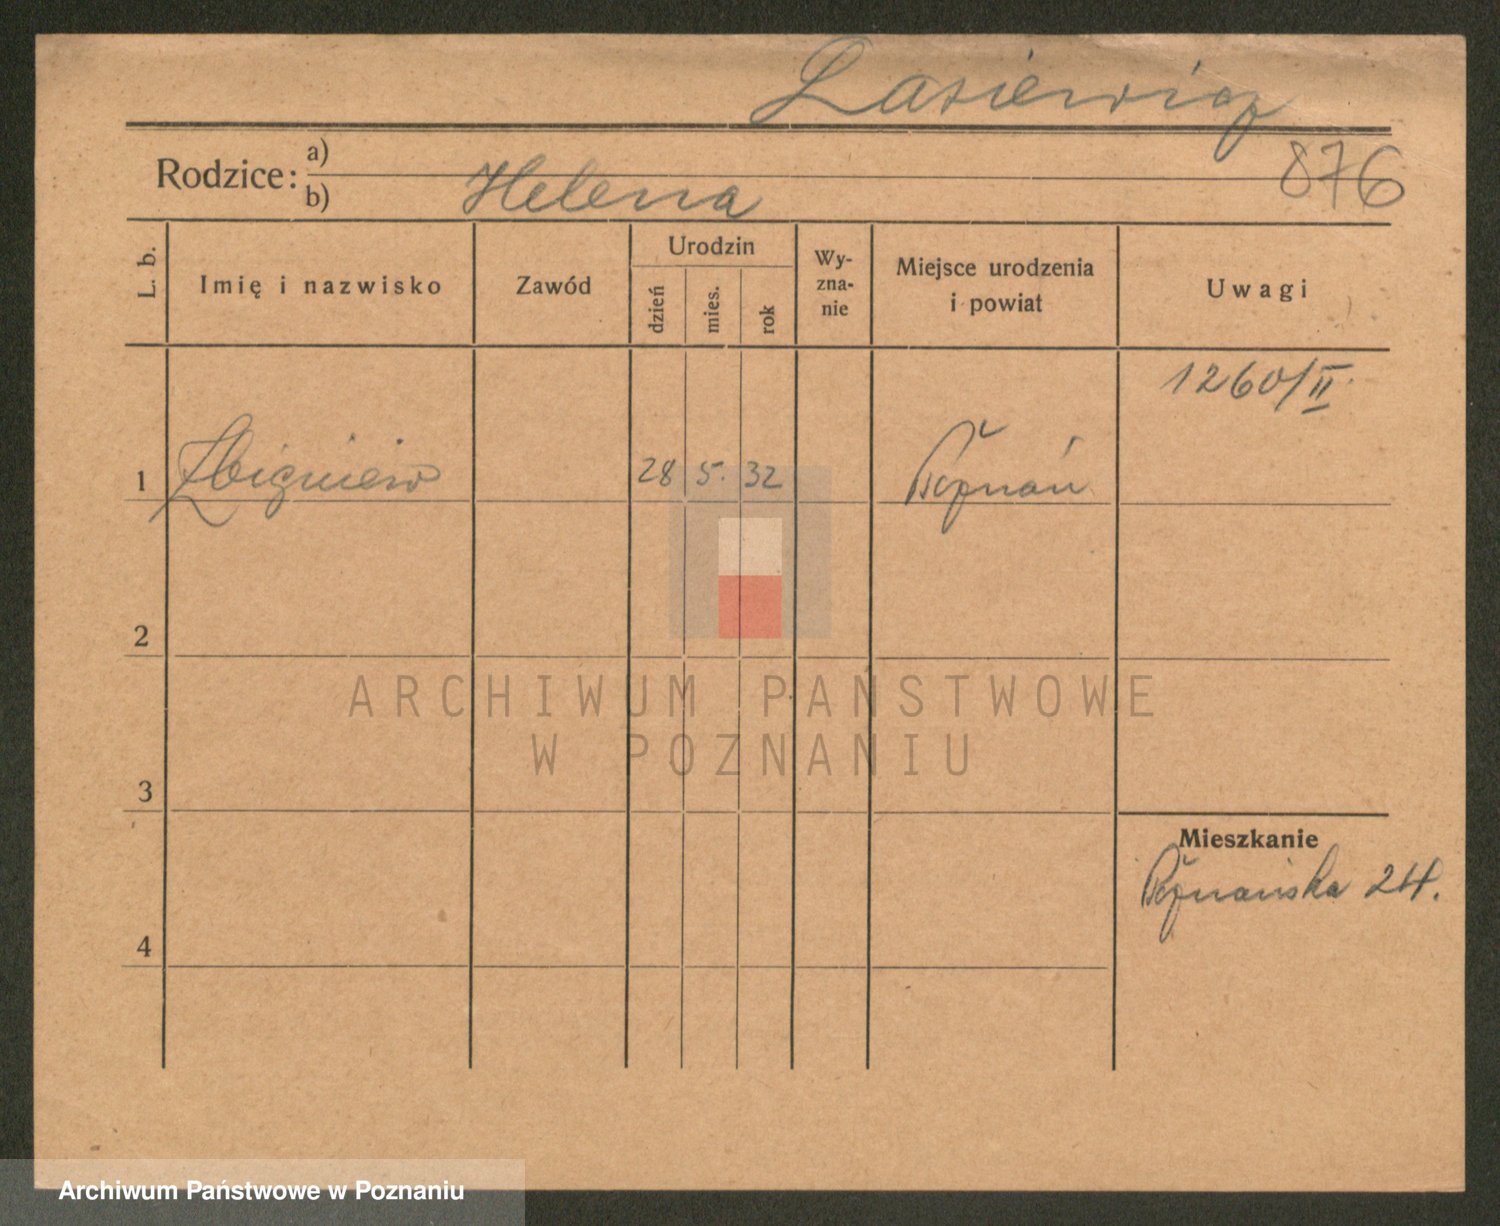 Lasiewicz
Rodzice: a)
b) Helena
876
L. b.
Imię i nazwisko
Zawód
Urodzin
dzień
mies.
rok
Wy-
zna-
nie
Miejsce urodzenia
i powiat
Uwagi
1260/II
1 Zbigniew 28 5. 32 Poznań
2
3
4
Mieszkanie
Poznańska 24.
ARCHIWUM PAŃSTWOWE
W POZNANIU
Archiwum Państwowe w Poznaniu